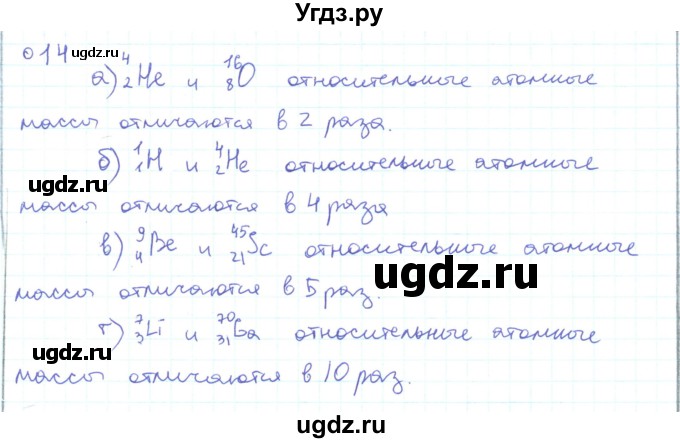 Угдз.ру
014 ugdz.ru
а) ⁴₂He и ¹⁶₈O относительные атомные
массы отличаются в 2 раза.
ugdz.ru
б) ¹₁H и ⁴₂He относительные атомные
ugdz.ru
массы отличаются в 4 раза
в) ⁹₄Be и ⁴⁵₂₁Sc относительные атомные
ugdz.ru
массы отличаются в 5 раз.
г) ⁷₃Li и ⁷⁰₃₁Ga относительные атомные
ugdz.ru
массы отличаются в 10 раз.
ugdz.ru